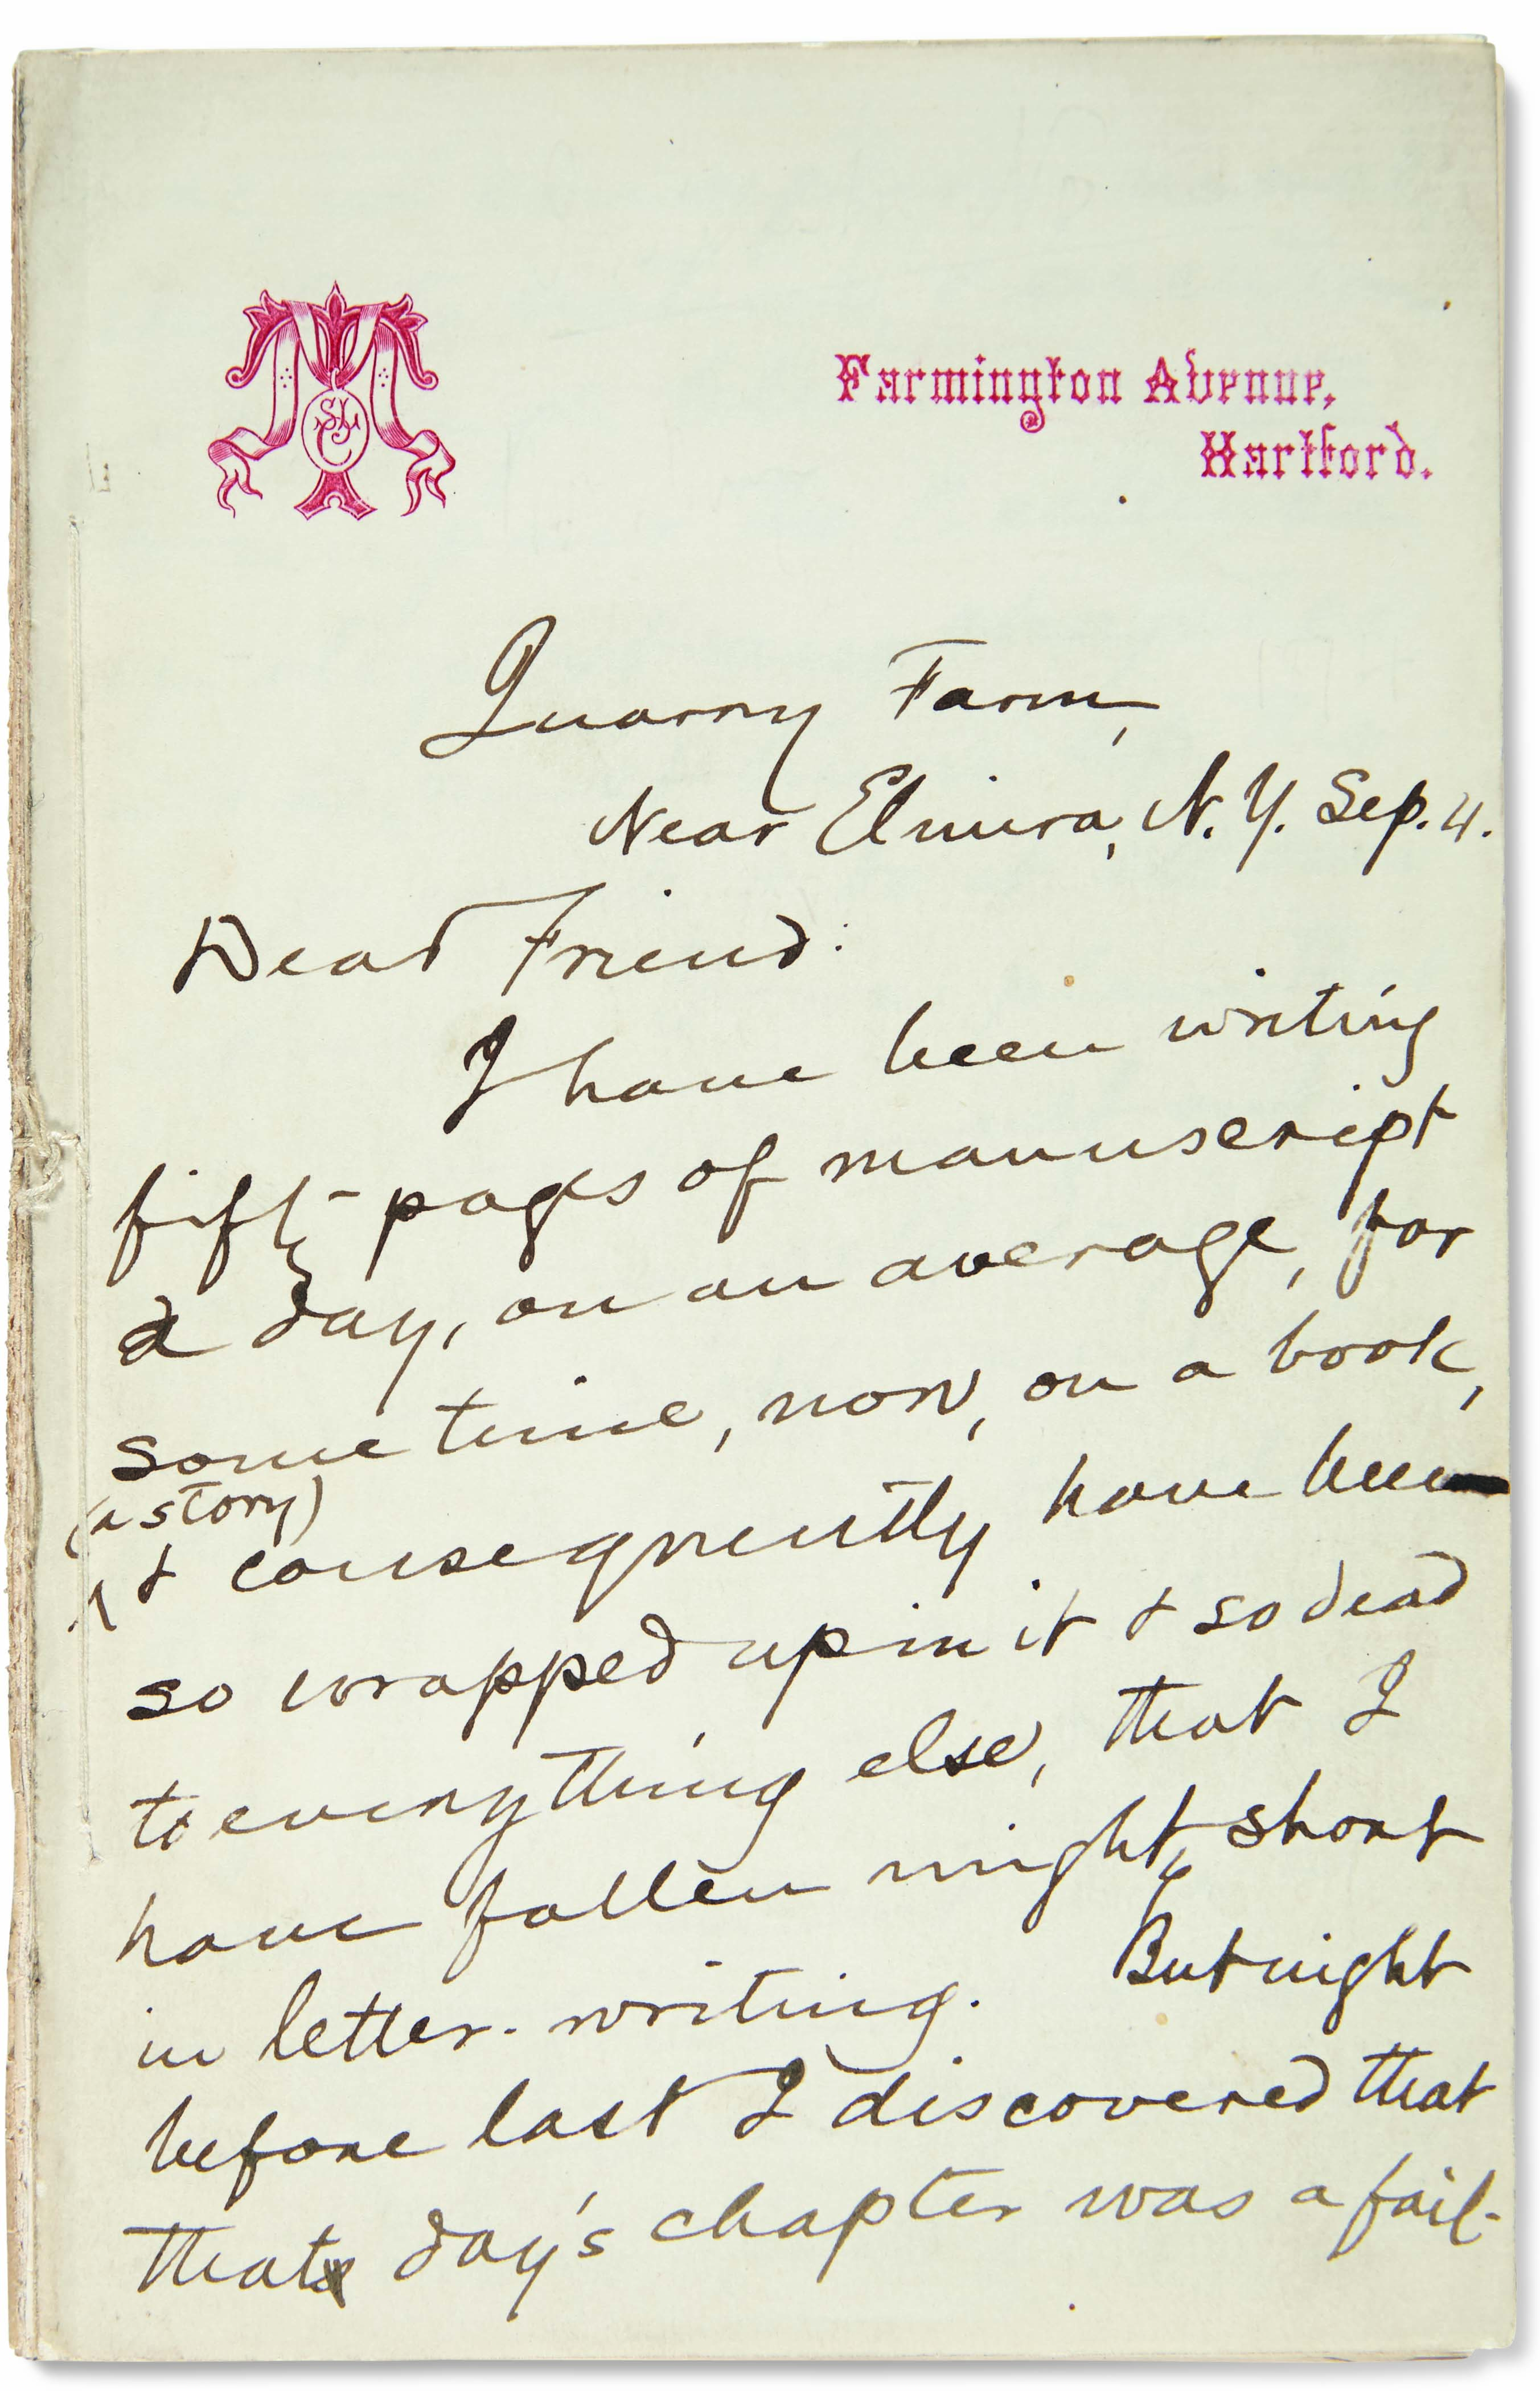 SLC
Farmington Avenue,
Hartford.
Quarry Farm,
Near Elmira, N. Y. Sep. 4.
Dear Friend:
I have been writing
fifty pages of manuscript
a day, on an average, for
some time, now, on a book,
(a story)
& consequently have been
so wrapped up in it & so dead
to everything else, that I
have fallen mighty short
in letter-writing. But night
before last I discovered that
that day's chapter was a fail-